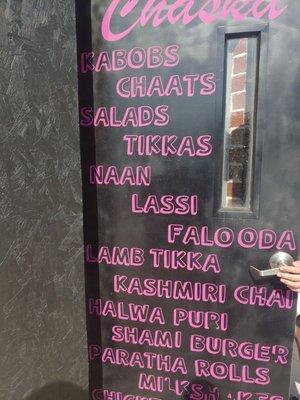 Chaska
KABOBS
CHAATS
SALADS
TIKKAS
NAAN
LASSI
FALOODA
LAMB TIKKA
KASHMIRI CHAI
HALWA PURI
SHAMI BURGER
PARATHA ROLLS
MILKSHAKES